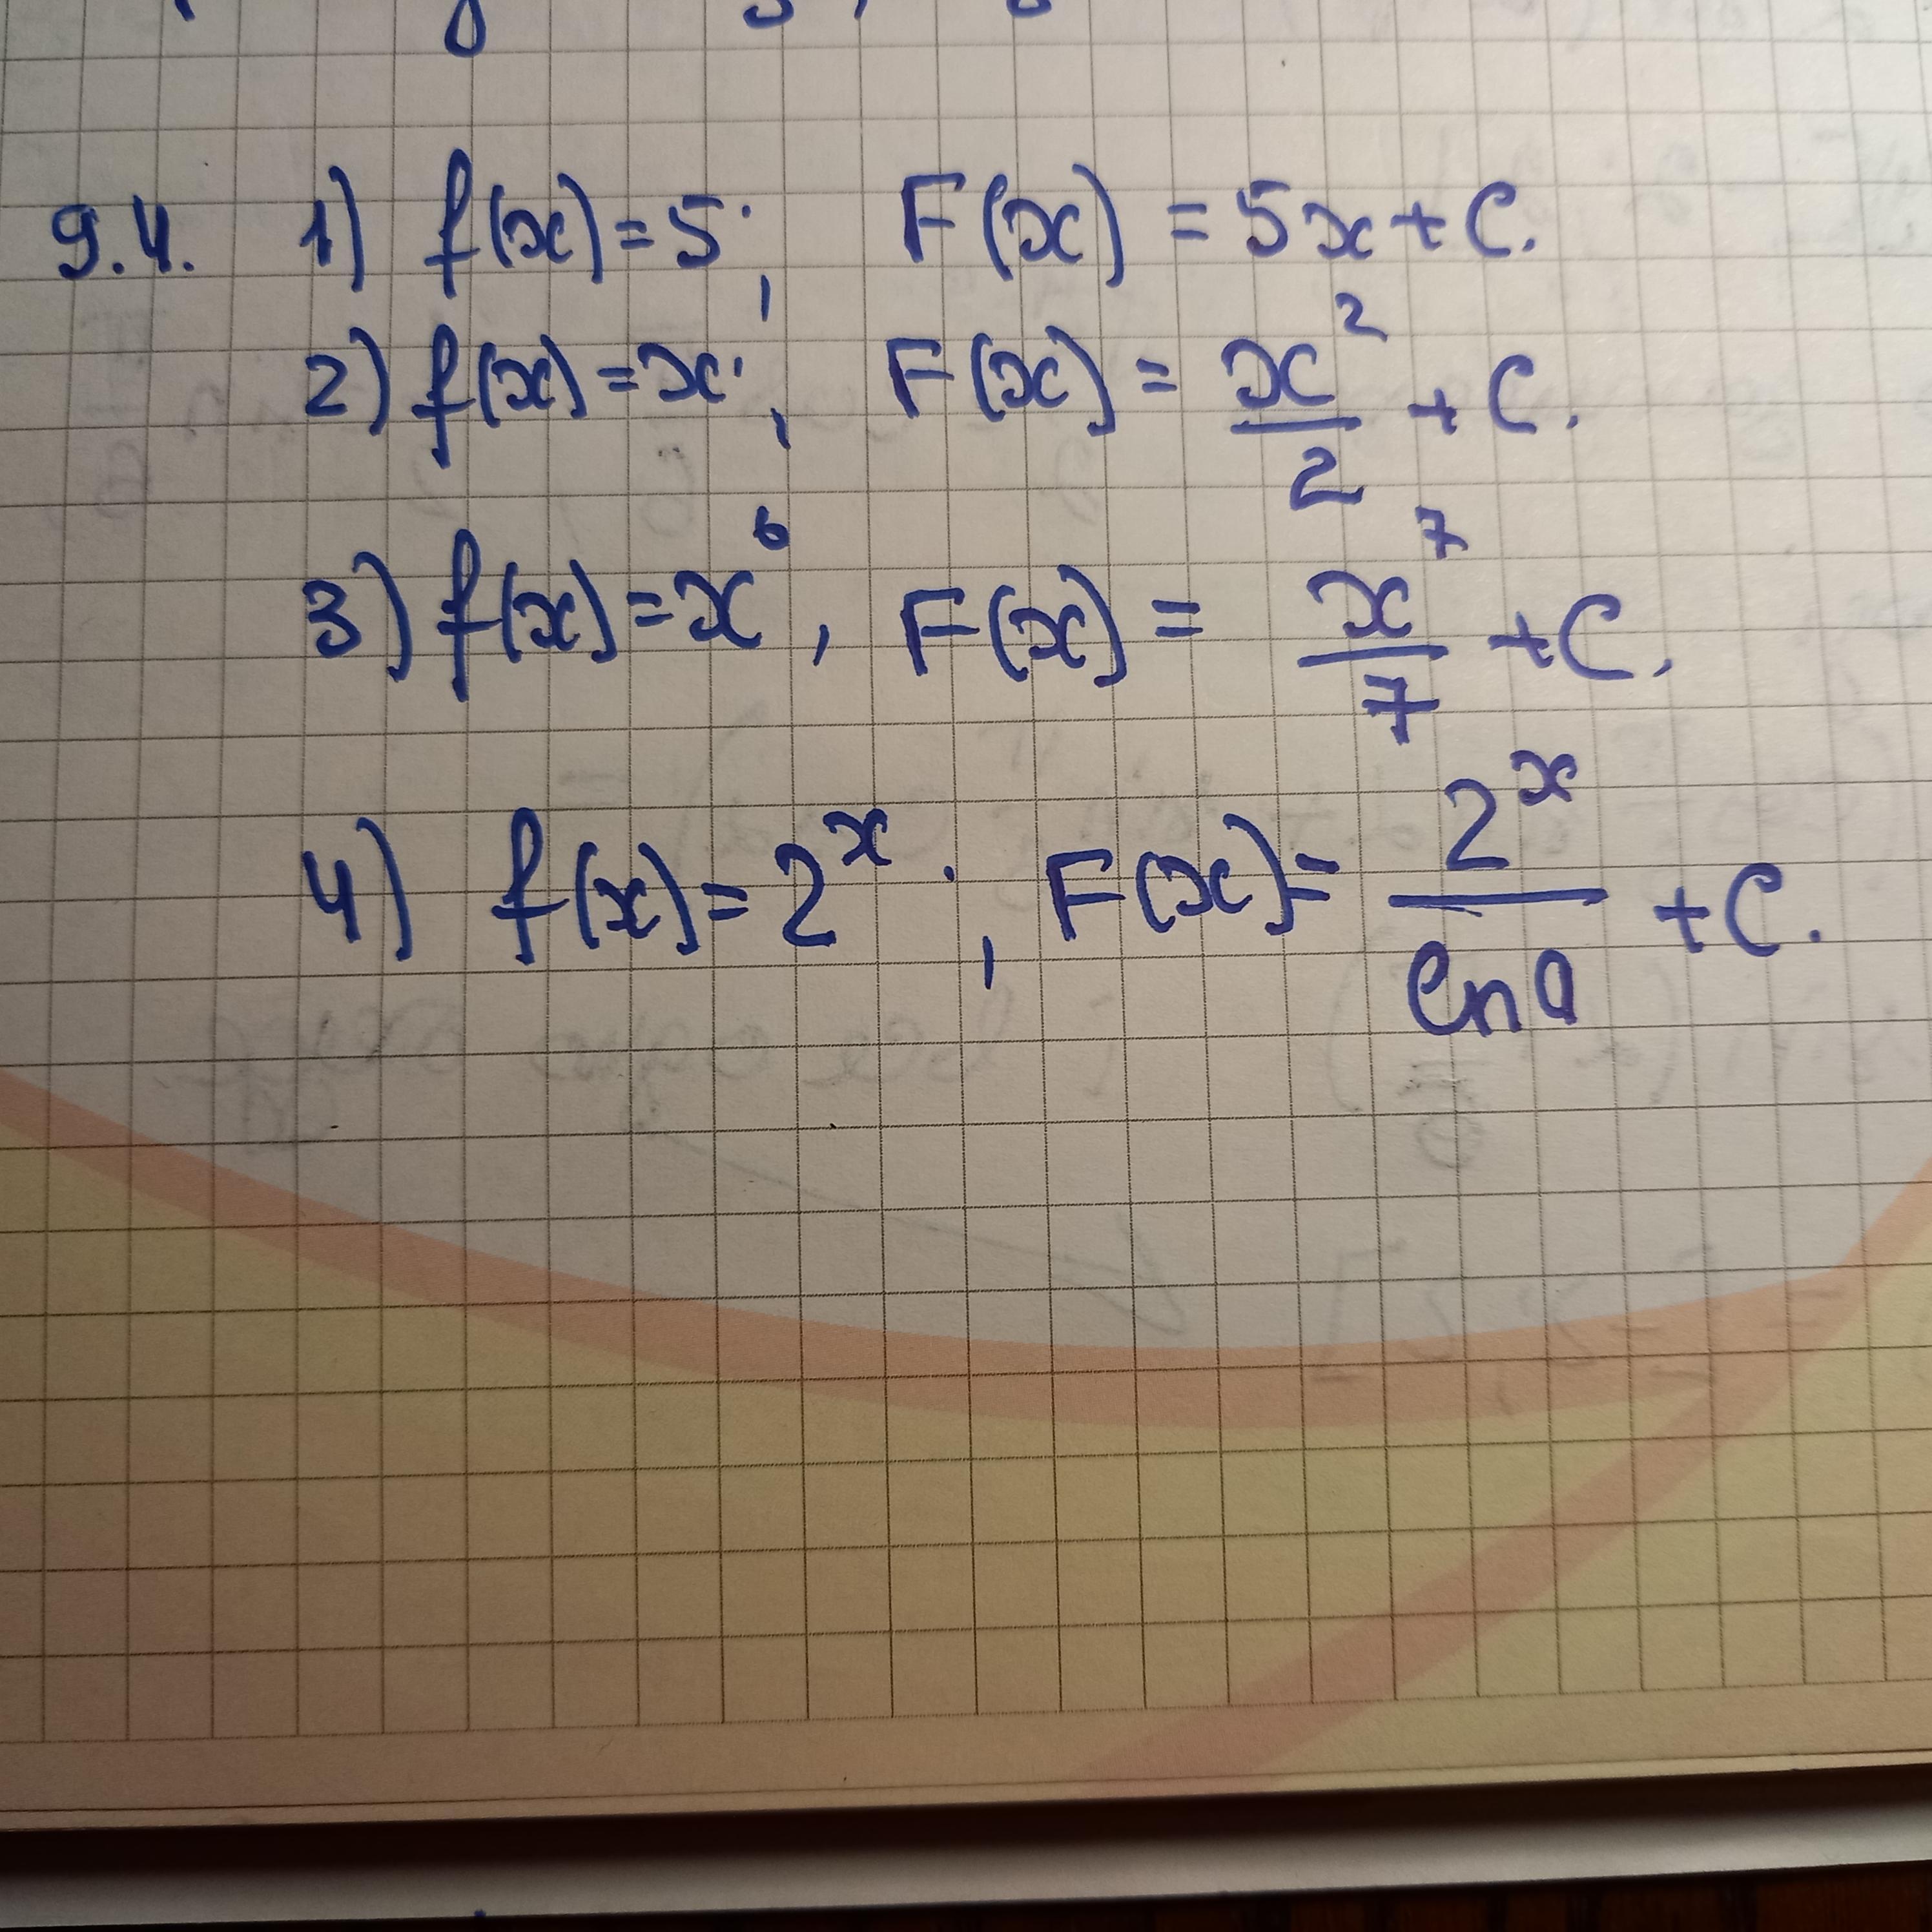 9.4. 1) f(x) = 5; F(x) = 5x + C.
2) f(x) = x; F(x) = x²/2 + C.
3) f(x) = x⁶, F(x) = x⁷/7 + C.
4) f(x) = 2ˣ; F(x) = 2ˣ/ln a + C.